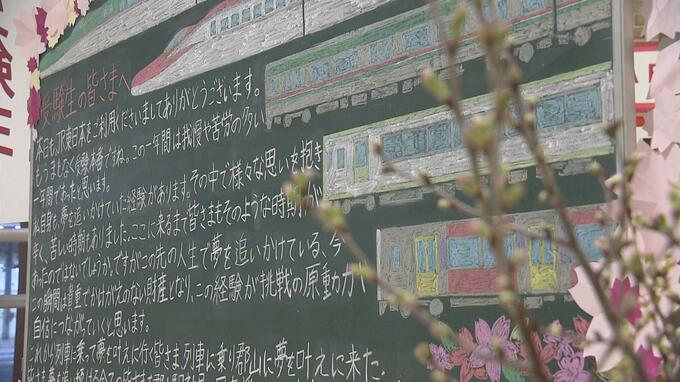 受験生の皆さまへ
本日も、JR東日本をご利用くださいましてありがとうございます。
もうまもなく受験本番ですね。この一年間は我慢や苦労の多い
一年間であったと思います。
私自身も夢を追いかけていた経験があります。その中で様々な思いを抱き
辛く、苦しい時期もありました。ここに来るまで皆さまもそのような時期が
あったのではないでしょうか。ですがこの先の人生で夢を追いかけている、今
この瞬間は貴重でかけがえのない財産となり、この経験が挑戦の原動力
自信につながっていくと思います。
これから列車に乗って夢を叶えに行く皆さま、列車に乗り郡山に夢を叶えに来た